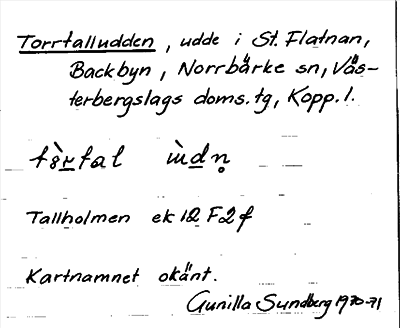 Torrtalludden, udde i St. Flatnan,
Backbyn, Norrbärke sn, Väs-
terbergslags doms.tg, Kopp.l.
tòrtal ùdn̥
Tallholmen ek 12 F2f
Kartnamnet okänt.
Gunilla Sundberg 1970-71